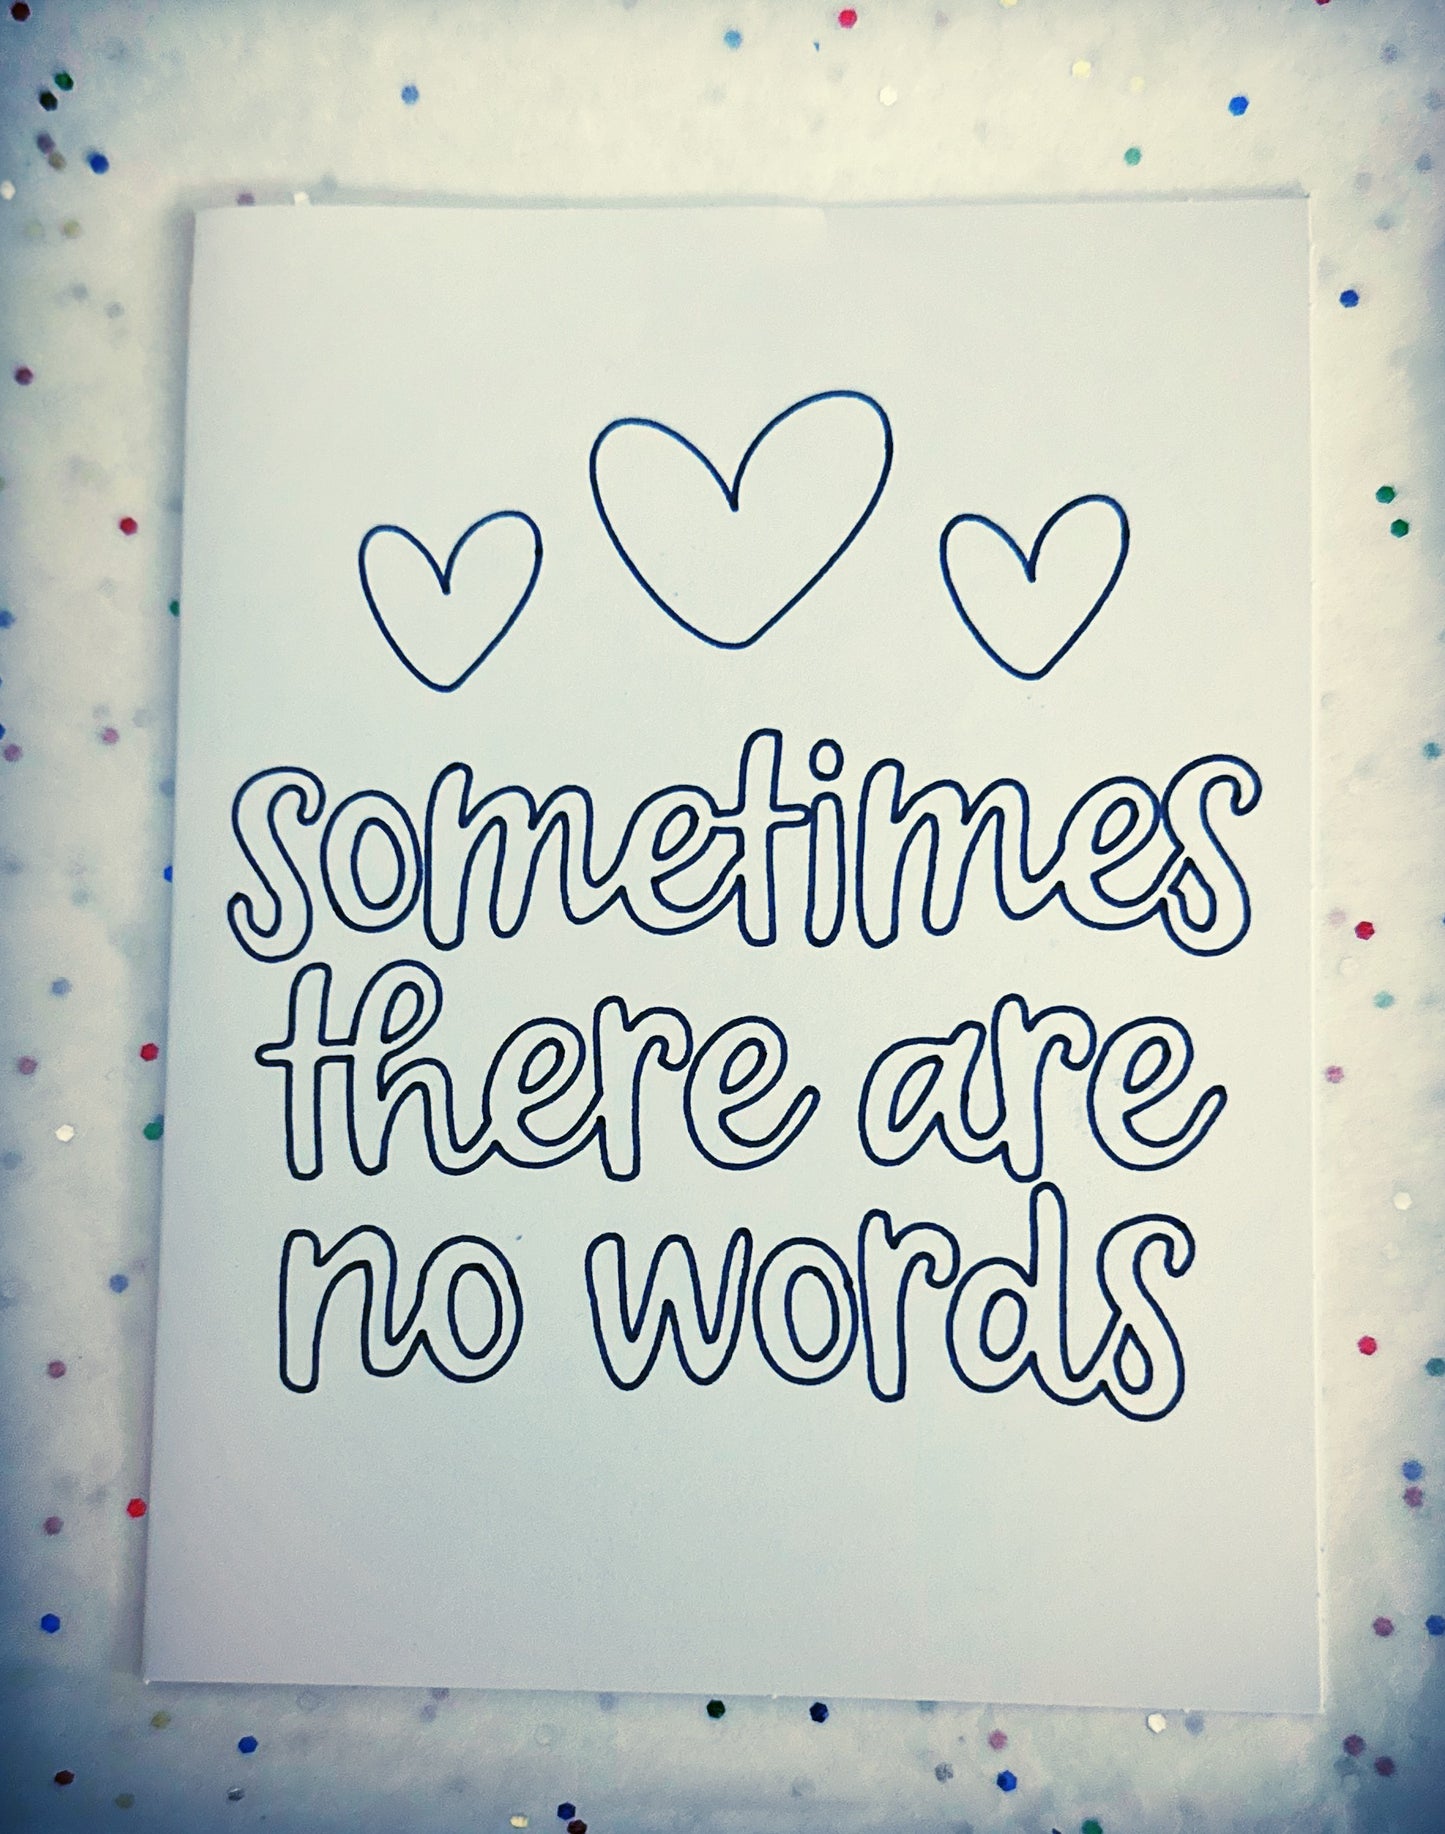 sometimes
there are
no words